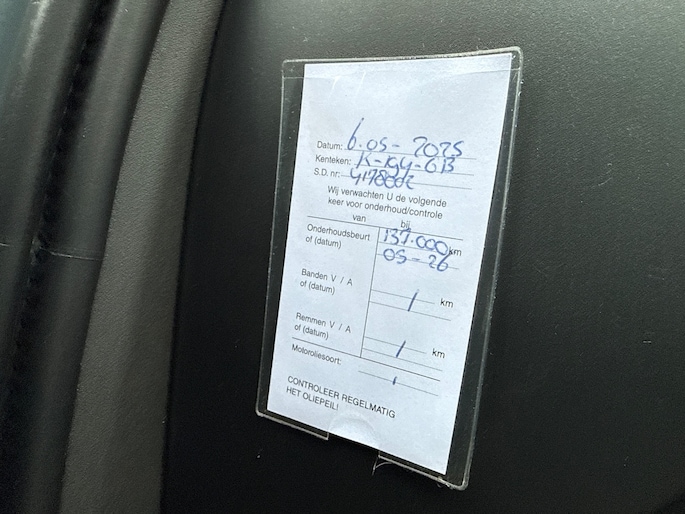 Datum: 6.05-2025
Kenteken:
S.D. nr:
Wij verwachten U de volgende
keer voor onderhoud/controle
van bij
Onderhoudsbeurt 137.000 km
of (datum) 05-26
Banden V / A / km
of (datum)
Remmen V / A / km
of (datum)
Motoroliesoort: /
CONTROLEER REGELMATIG
HET OLIEPEIL!